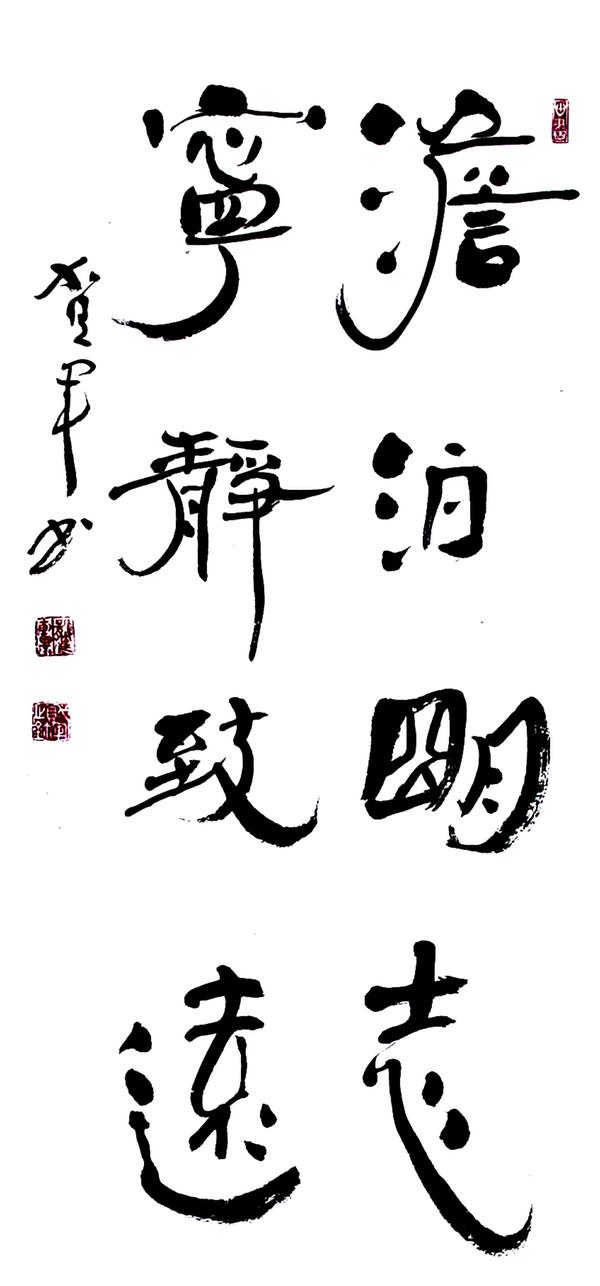 澹泊明志
寧靜致遠
賀軍书